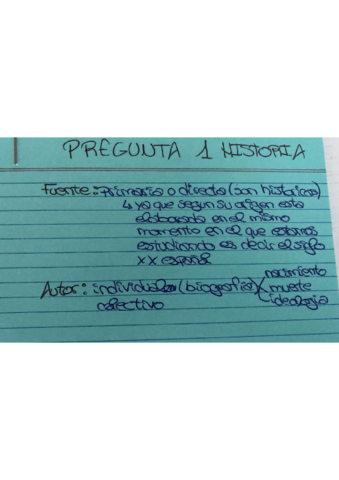 PREGUNTA 1 HISTORIA
Fuente: Primaria o directa (son historicas)
↳ ya que segun su origen esta
elaborada en el mismo
momento en el que estamos
estudiando es decir el siglo
XX español
nacimiento
Autor: individual (biografia) muerte
colectivo ideologia